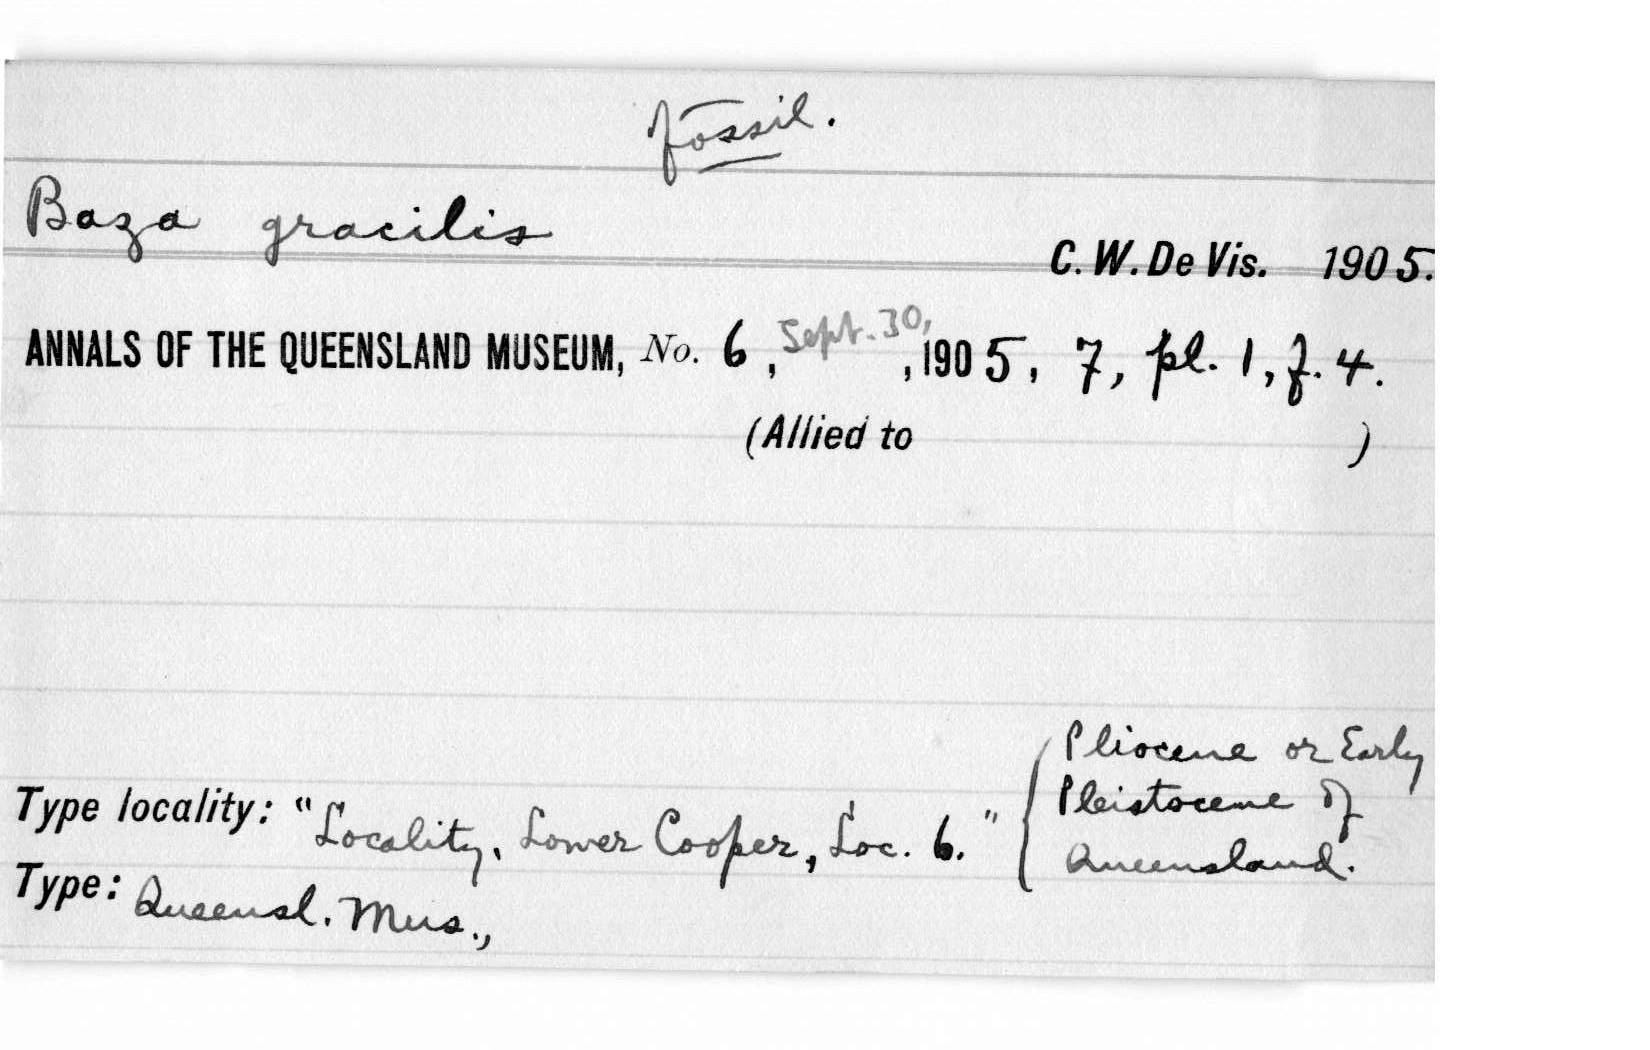 fossil.
Baza gracilis
C. W. De Vis. 1905.
ANNALS OF THE QUEENSLAND MUSEUM, No. 6, Sept. 30, , 1905, 7, pl. 1, f. 4.
(Allied to )
Type locality: "Locality, Lower Cooper, Loc. 6."
Pliocene or Early
Pleistocene of
Queensland.
Type: Queensl. Mus.,